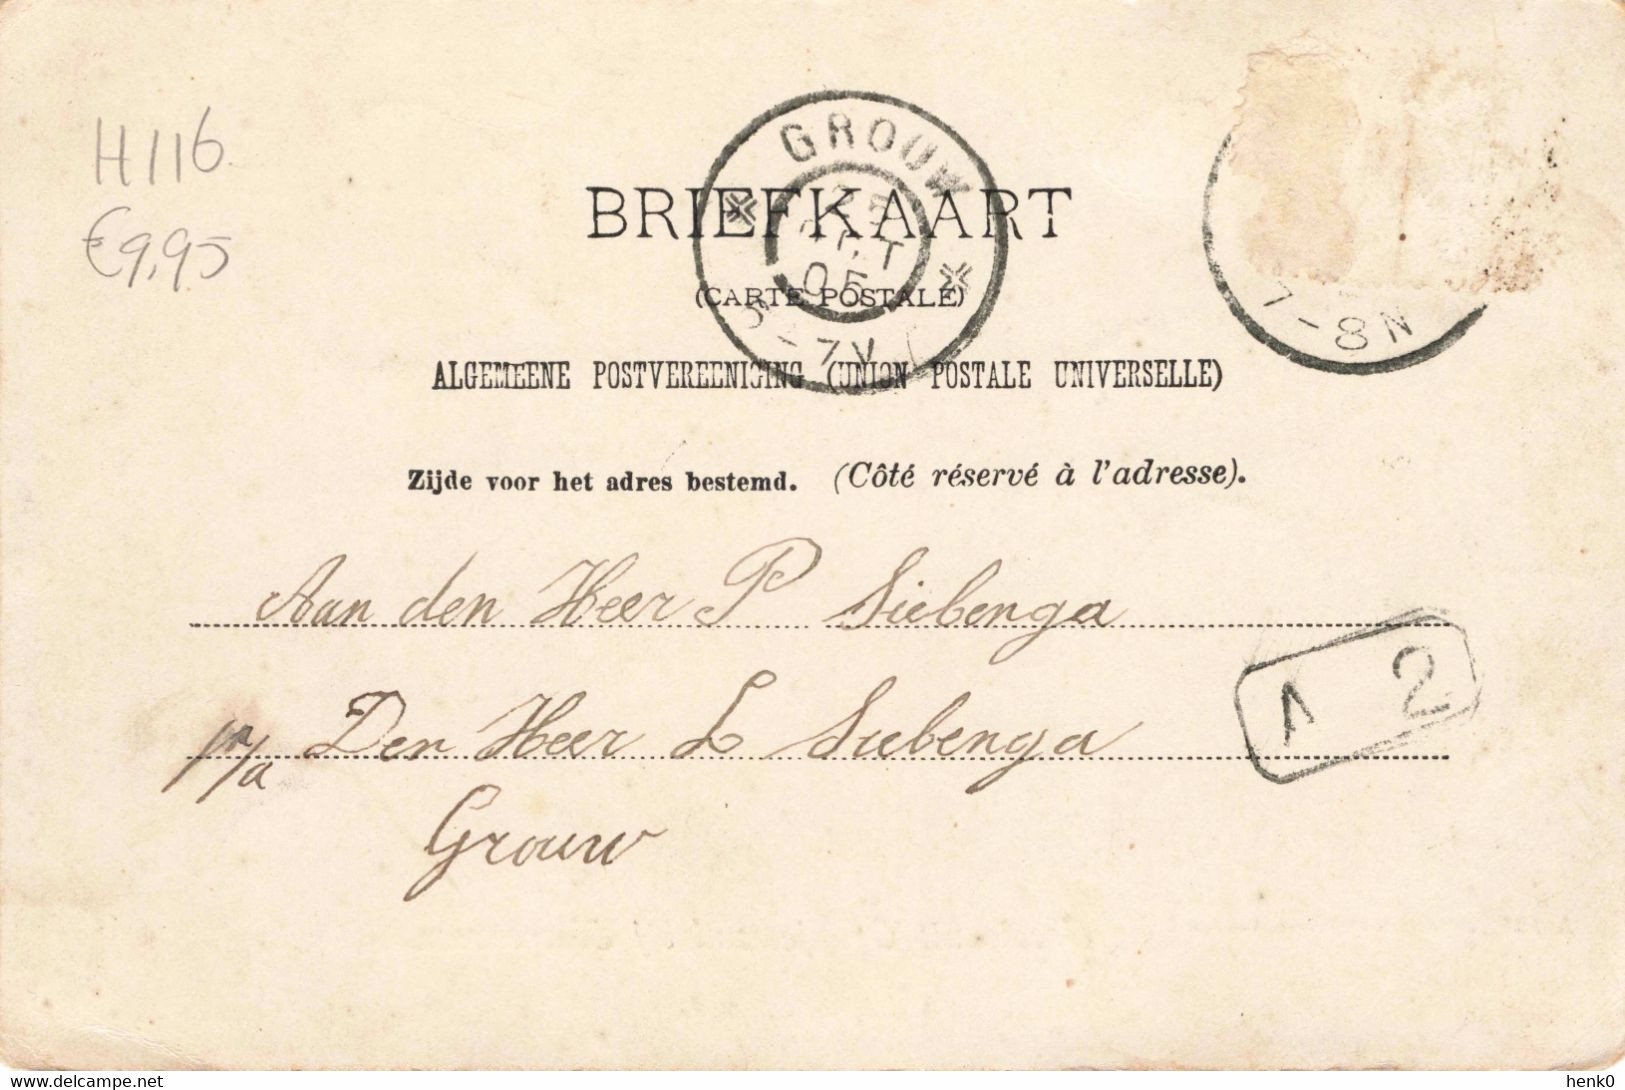 H116.
€9,95
GROUW
OCT
05
7V
7-8N
BRIEFKAART
(CARTE POSTALE)
ALGEMEENE POSTVEREENIGING (UNION POSTALE UNIVERSELLE)
Zijde voor het adres bestemd. (Côté réservé à l'adresse).
Aan den Heer P Siebenga
p/a Den Heer L Siebenga
A 2
Grouw
delcampe.net
henk0